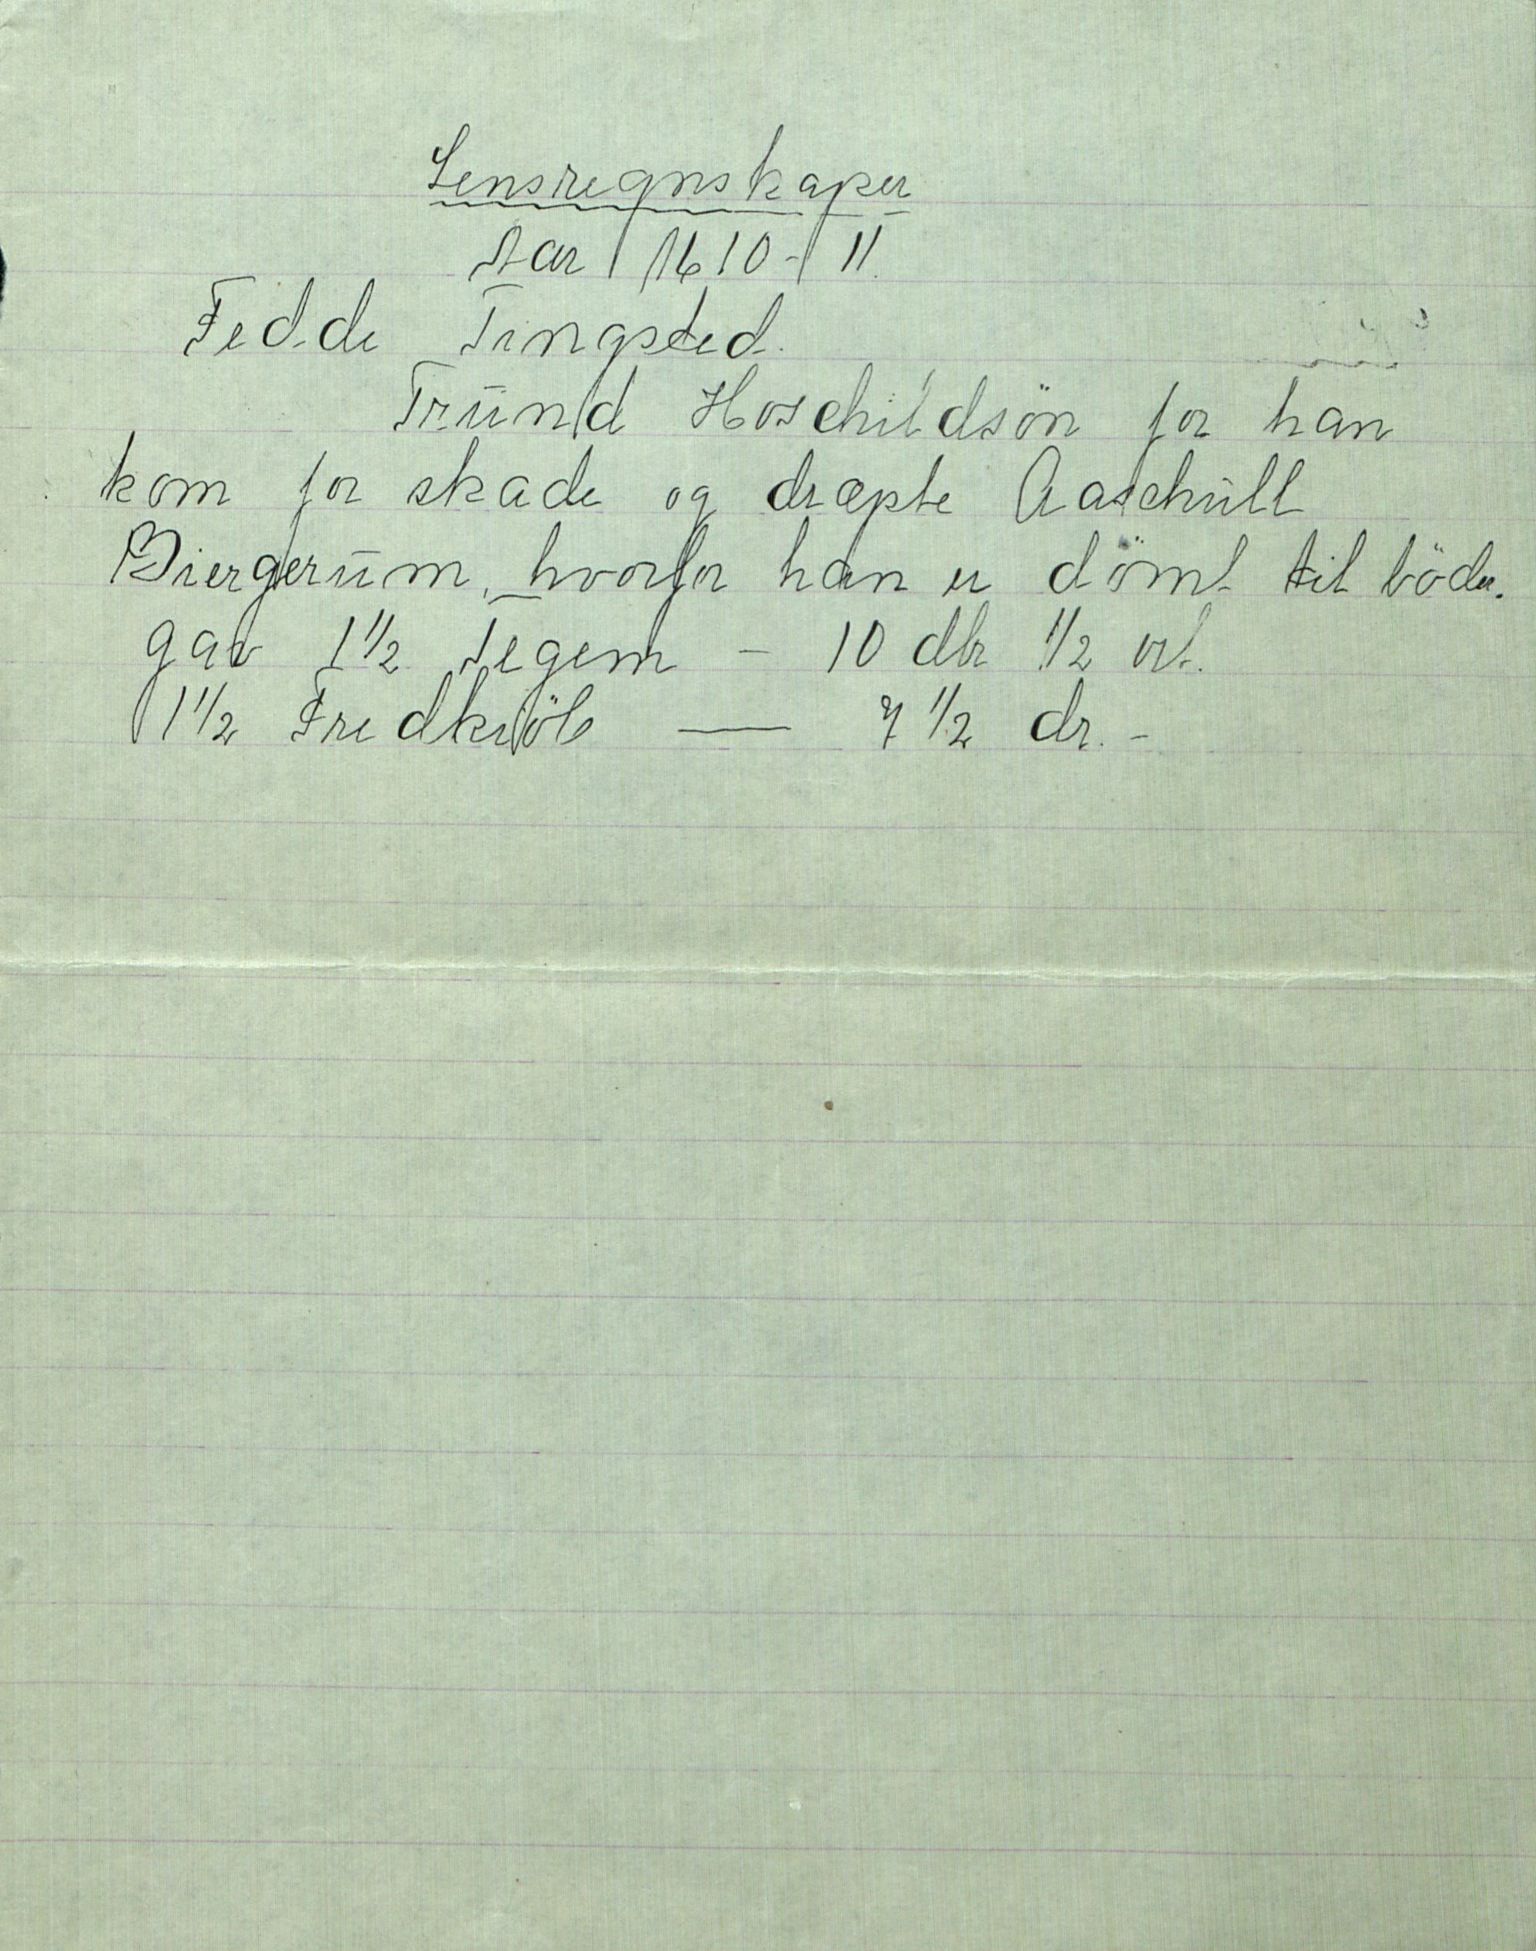 Lensregnskaper
Aar 1610-11.
Fedde Tingsted.
Tründ Hoschildsön for han
kom for skade og dræpte Aaschüll
Biergerüm, hvorfor han er dömt til böder.
gav 1 1/2 tegem - 10 dlr 1/2 ort.
1 1/2 Fredkiöb — 7 1/2 dr. -